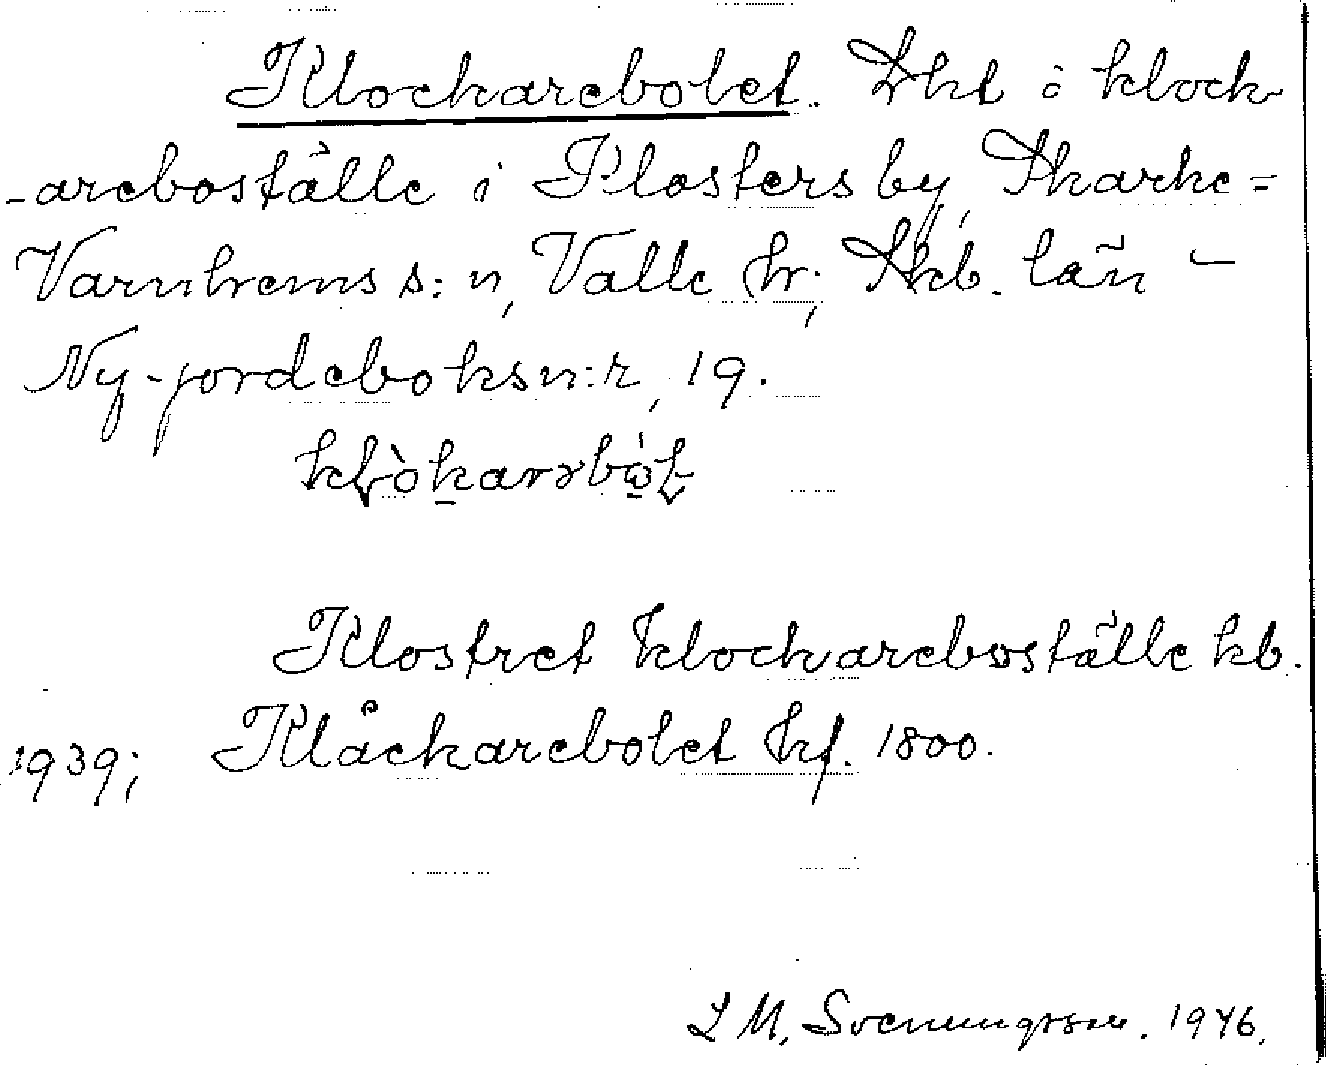 Klockarebolet. Lht i klock-
-areboställe i Klosters by, Skarke=
Varnhems s:n, Valle hr; Skb. län –
Ny-jordeboksn:r, 19.
Klostret klockareboställe kb.
1939; Klåckarebolet hf. 1800.
L M, Svenungsson. 1946.